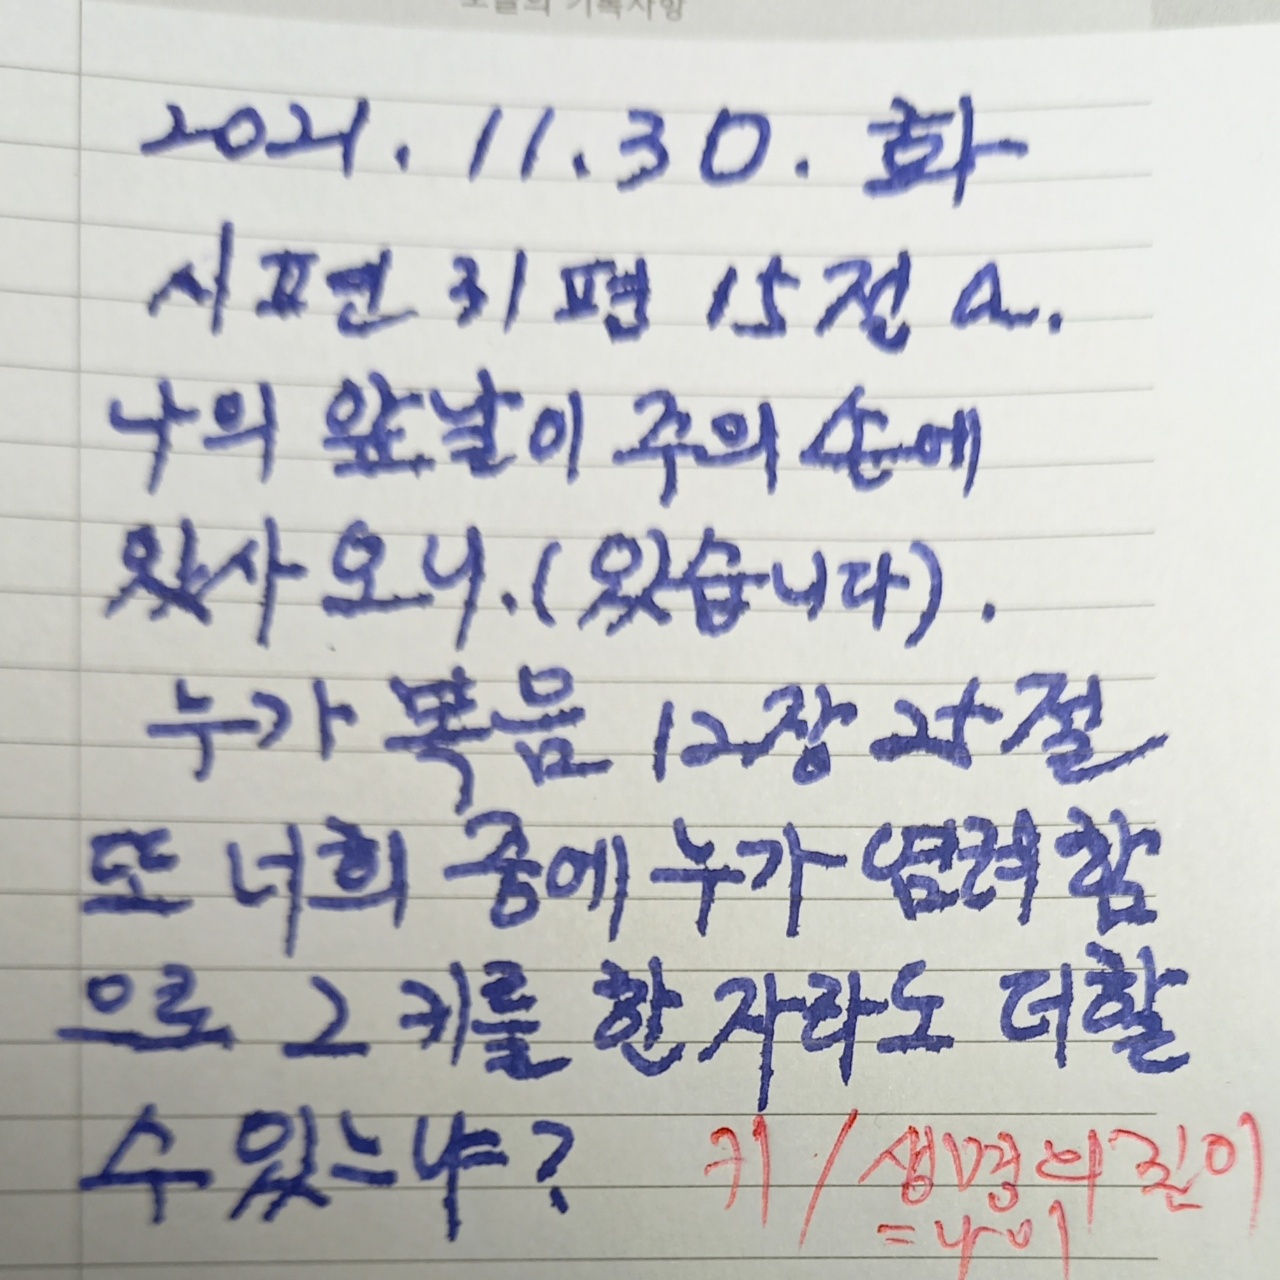 오늘의 기록사항
2021. 11. 30. 화
시편 31편 15절 a.
나의 앞날이 주의 손에
있사오니.(있습니다).
누가복음 12장 25절
또 너희 중에 누가 염려함
으로 그 키를 한 자라도 더할
수 있느냐?
키 / 생명의 길이
= 나이